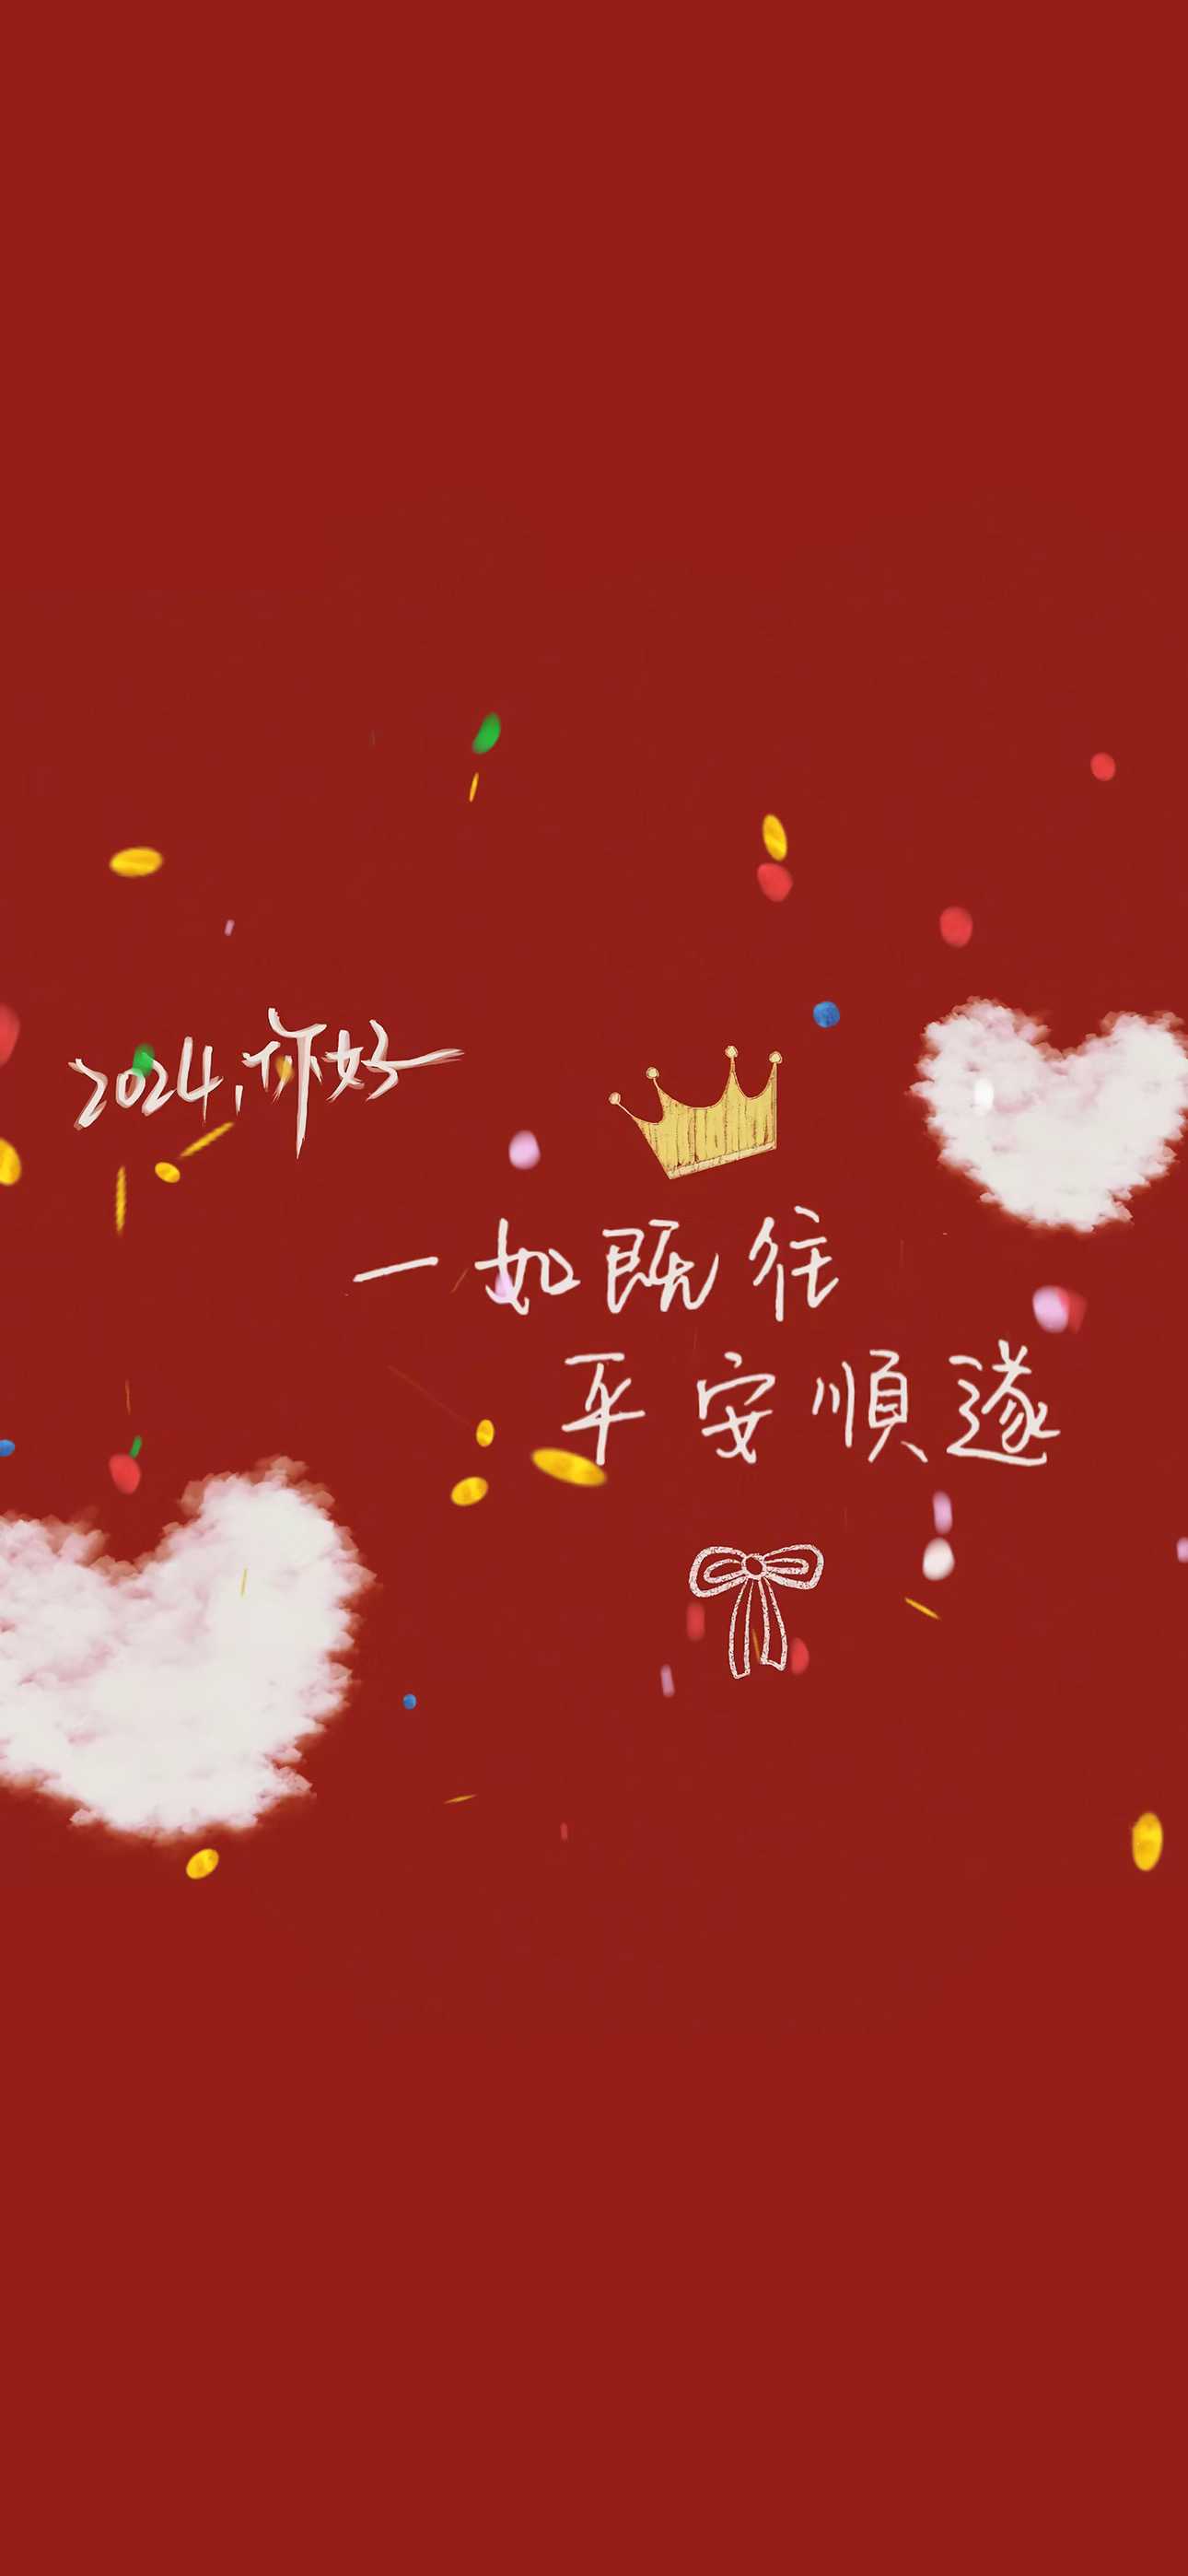 2024,你好
一如既往
平安順遂